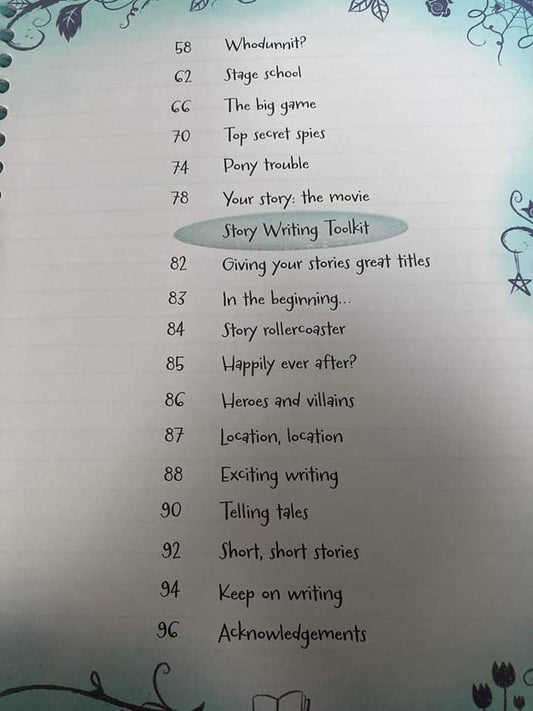 58 Whodunnit?
62 Stage school
66 The big game
70 Top secret spies
74 Pony trouble
78 Your story: the movie
Story Writing Toolkit
82 Giving your stories great titles
83 In the beginning...
84 Story rollercoaster
85 Happily ever after?
86 Heroes and villains
87 Location, location
88 Exciting writing
90 Telling tales
92 Short, short stories
94 Keep on writing
96 Acknowledgements